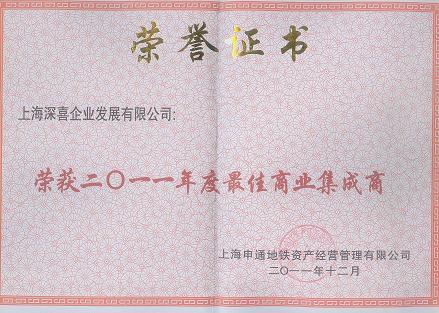 荣誉证书
上海深喜企业发展有限公司:
荣获二〇一一年度最佳商业集成商
上海申通地铁资产经营管理有限公司
二〇一一年十二月